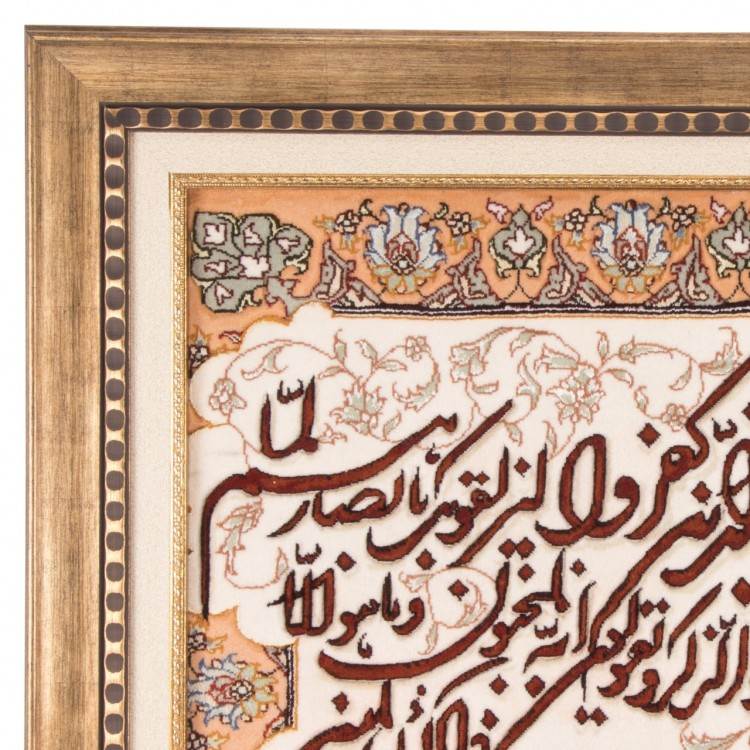 كفروا ليزلقونك بابصارهم لمّا
الذكر و يقولون انّه لمجنون و ما هو الّا